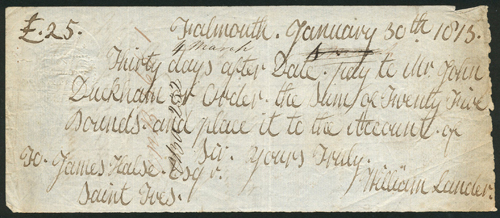 £.25. Falmouth. January 30th 1813.
4 March
Thirty days after Date. pay to Mr John
Duckham or Order. the Sum of Twenty Five
Pounds. and place it to the Account. of
Sir. Yours Truly.
To. James Halse. Esqr.
William Lander.
Saint Ives.